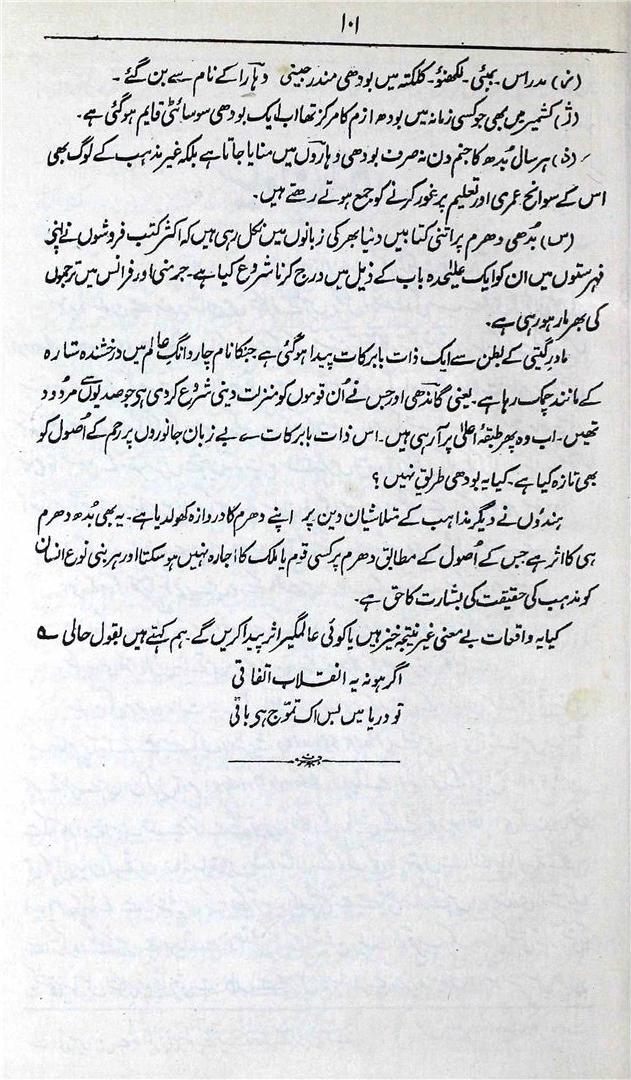 ۱۰۱
(ز) مدراس۔ بمبئی۔ لکھنؤ۔ کلکتہ میں بودھی مندر جینی دہارا کے نام سے بن گئے۔
(ژ) کشمیر میں بھی جو کسی زمانہ میں بودھ ازم کا مرکز تھا اب ایک بودھی سوسائٹی قایم ہو گئی ہے۔
(ذ) ہر سال بُدھ کا جنم دن نہ صرف بودھی دہاروں میں منایا جاتا ہے بلکہ غیر مذہب کے لوگ بھی
اس کے سوانح عمری اور تعلیم پر غور کرنے کو جمع ہوتے رہتے ہیں۔
(س) بُدھی دھرم پر اتنی کتابیں دنیا بھر کی زبانوں میں نکل رہی ہیں کہ اکثر کتب فروشوں نے اپنی
فہرستوں میں ان کو ایک علیٰحدہ باب کے ذیل میں درج کرنا شروع کیا ہے۔ جرمنی اور فرانس میں ترجموں
کی بھر مار ہو رہی ہے۔
مادر گیتی کے بطن سے ایک ذات بابرکات پیدا ہو گئی ہے جنکا نام چار دانگ عالم میں درخشندہ ستارہ
کے مانند چمک رہا ہے۔ یعنی گاندھی اور جس نے اُن قوموں کو منزلت دینی شروع کر دی ہی جو صدیوں سے مردود
تھیں۔ اب وہ پھر طبقۂ اعلیٰ پر آ رہی ہیں۔ اس ذات بابرکات نے بے زبان جانوروں پر رحم کے اُصول کو
بھی تازہ کیا ہے۔ کیا یہ بودھی طریق نہیں؟
ہندؤں نے دیگر مذاہب کے متلاشیان دین پر اپنے دھرم کا دروازہ کھولدیا ہے۔ یہ بھی بُدھ دھرم
ہی کا اثر ہے جس کے اُصول کے مطابق دھرم پر کسی قوم یا ملک کا اجارہ نہیں ہو سکتا اور ہر بنی نوع انسان
کو مذہب کی حقیقت کی بشارت کا حق ہے۔
کیا یہ واقعات بے معنی غیر نتیجہ خیز ہیں یا کوئی عالمگیر اثر پیدا کریں گے۔ ہم کہتے ہیں بقول حالی ؎
اگر ہو نہ یہ انقلاب اتفاقی
تو دریا میں بس اک تموّج ہی باقی